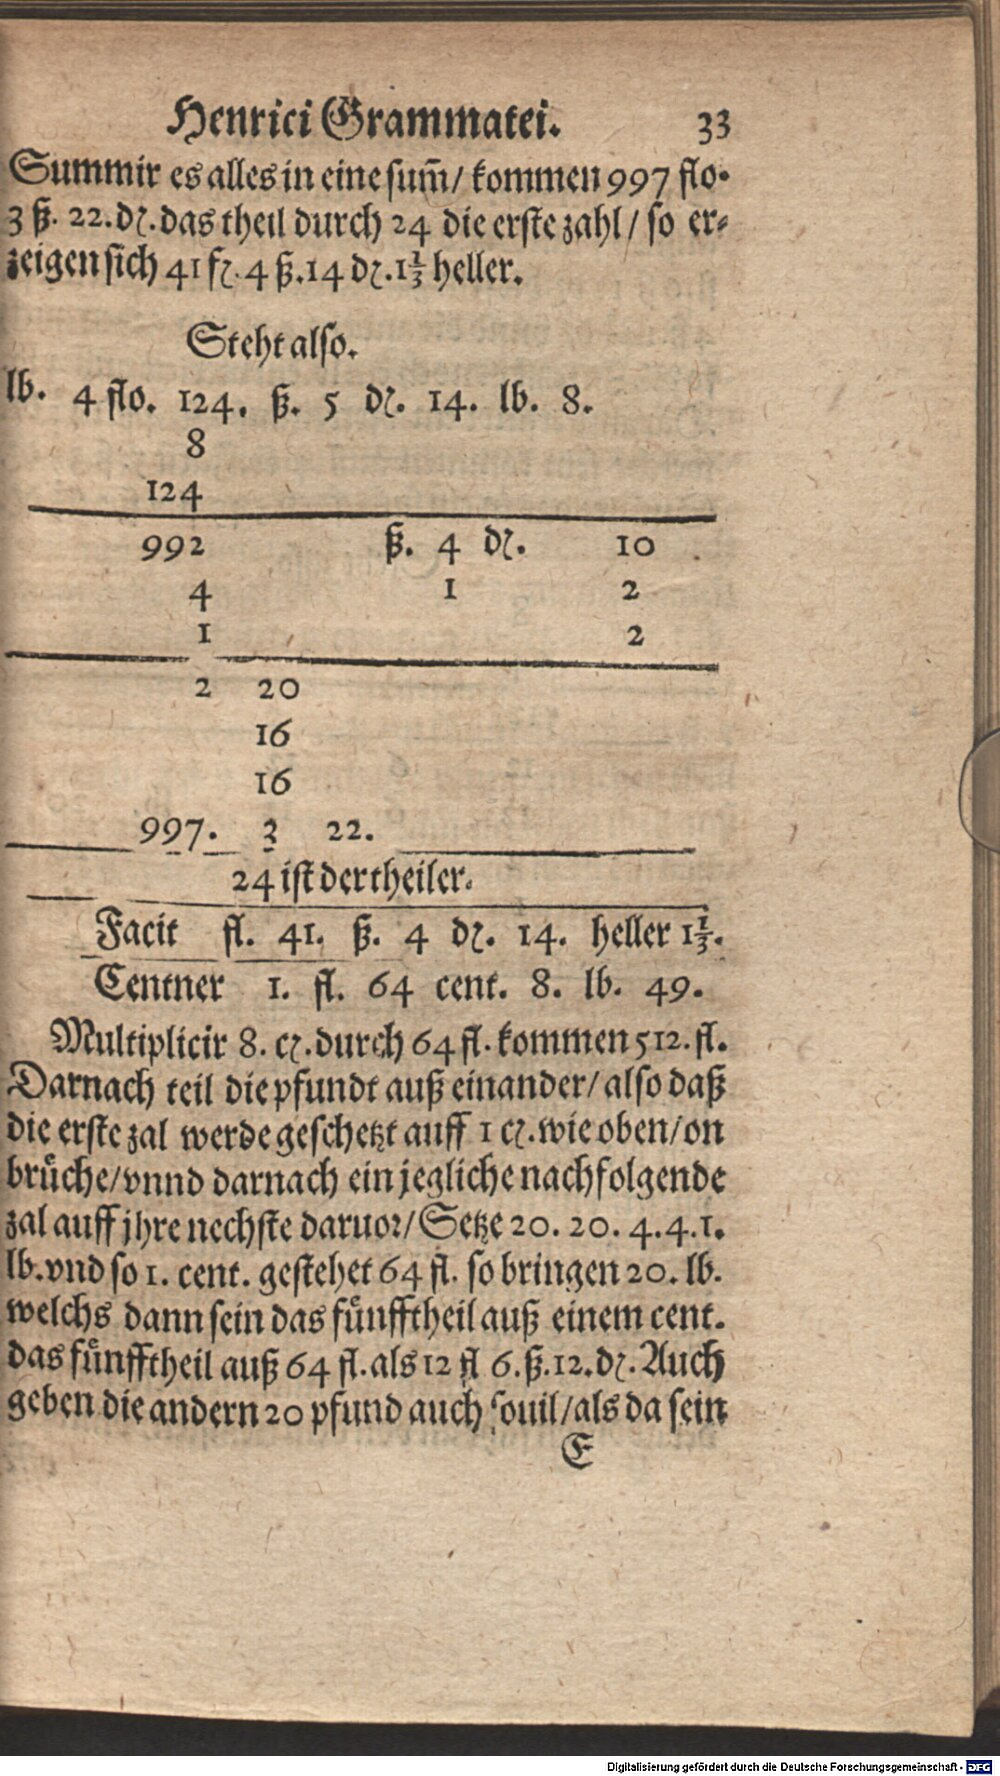 Henrici Grammatei. 33
Summir es alles in eine sum̃/ kommen 997 flo.
3 ß. 22. d₰. das theil durch 24 die erste zahl/ so er-
zeigen sich 41 f₰. 4 ß. 14 d₰. 1 1/3 heller.
Steht also.
lb. 4 flo. 124. ß. 5 d₰. 14. lb. 8.
8
124
992 ß. 4 d₰. 10
4 1 2
1 2
2 20
16
16
997. 3 22.
24 ist der theiler.
Facit fl. 41. ß. 4 d₰. 14. heller 1 1/3.
Centner 1. fl. 64 cent. 8. lb. 49.
Multiplicir 8. c₰. durch 64 fl. kommen 512. fl.
Darnach teil die pfundt auß einander/ also daß
die erste zal werde geschetzt auff 1 c₰. wie oben/ on
bruͤche/ vnnd darnach ein jegliche nachfolgende
zal auff jhre nechste daruor/ Setze 20. 20. 4. 4. 1.
lb. vnd so 1. cent. gestehet 64 fl. so bringen 20. lb.
welchs dann sein das fuͤnfftheil auß einem cent.
das fuͤnfftheil auß 64 fl. als 12 fl 6. ß. 12. d₰. Auch
geben die andern 20 pfund auch souil/ als da sein
E
Digitalisierung gefördert durch die Deutsche Forschungsgemeinschaft - DFG